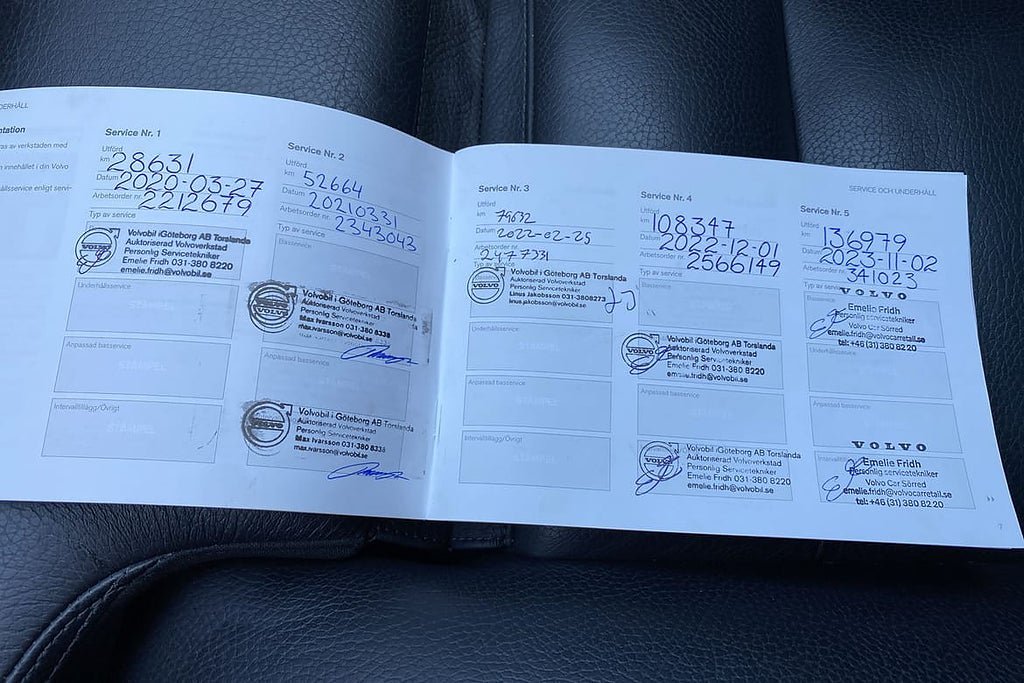 DERHÅLL
ntation
ras av verkstaden med
innehållet i din Volvo
hållsservice enligt servi-
Service Nr. 1
Utförd
km 28631
Datum 2020-03-27
Arbetsorder nr. 2212679
Typ av service
VOLVO
Volvobil i Göteborg AB Torslanda
Auktoriserad Volvoverkstad
Personlig Servicetekniker
Emelie Fridh 031-380 8220
emelie.fridh@volvobil.se
Underhållsservice
STÄMPEL
Anpassad basservice
STÄMPEL
Intervalltillägg/Övrigt
STÄMPEL
Service Nr. 2
Utförd
km 52664
Datum 20210331
Arbetsorder nr. 2343043
Typ av service
Basservice
STÄMPEL
VOLVO
Volvobil i Göteborg AB Torslanda
Auktoriserad Volvoverkstad
Personlig Servicetekniker
Max Ivarsson 031-380 8338
max.ivarsson@volvobil.se
Anpassad basservice
VOLVO
Volvobil i Göteborg AB Torslanda
Auktoriserad Volvoverkstad
Personlig Servicetekniker
Max Ivarsson 031-380 8338
max.ivarsson@volvobil.se
Service Nr. 3
Utförd
km 79632
Datum 2022-02-25
Arbetsorder nr. 2477331
Typ av service
VOLVO
Volvobil i Göteborg AB Torslanda
Auktoriserad Volvoverkstad
Personlig Servicetekniker
Linus Jakobsson 031-3808273
linus.jakobsson@volvobil.se
JJ
Underhållsservice
STÄMPEL
Anpassad basservice
STÄMPEL
Intervalltillägg/Övrigt
STÄMPEL
Service Nr. 4
Utförd
km 108347
Datum 2022-12-01
Arbetsorder nr. 2566149
Typ av service
Basservice
STÄMPEL
VOLVO
Volvobil i Göteborg AB Torslanda
Auktoriserad Volvoverkstad
Personlig Servicetekniker
Emelie Fridh 031-380 8220
emelie.fridh@volvobil.se
Anpassad basservice
STÄMPEL
VOLVO
Volvobil i Göteborg AB Torslanda
Auktoriserad Volvoverkstad
Personlig Servicetekniker
Emelie Fridh 031-380 8220
emelie.fridh@volvobil.se
SERVICE OCH UNDERHÅLL
Service Nr. 5
Utförd
km 136979
Datum 2023-11-02
Arbetsorder nr. 341023
Typ av service
VOLVO
Basservice
Emelie Fridh
Personlig servicetekniker
Volvo Car Sörred
emelie.fridh@volvocarretail.se
tel: +46 (31) 380 82 20
Underhållsservice
STÄMPEL
Anpassad basservice
STÄMPEL
VOLVO
Emelie Fridh
Personlig servicetekniker
Volvo Car Sörred
emelie.fridh@volvocarretail.se
tel: +46 (31) 380 82 20
»
7